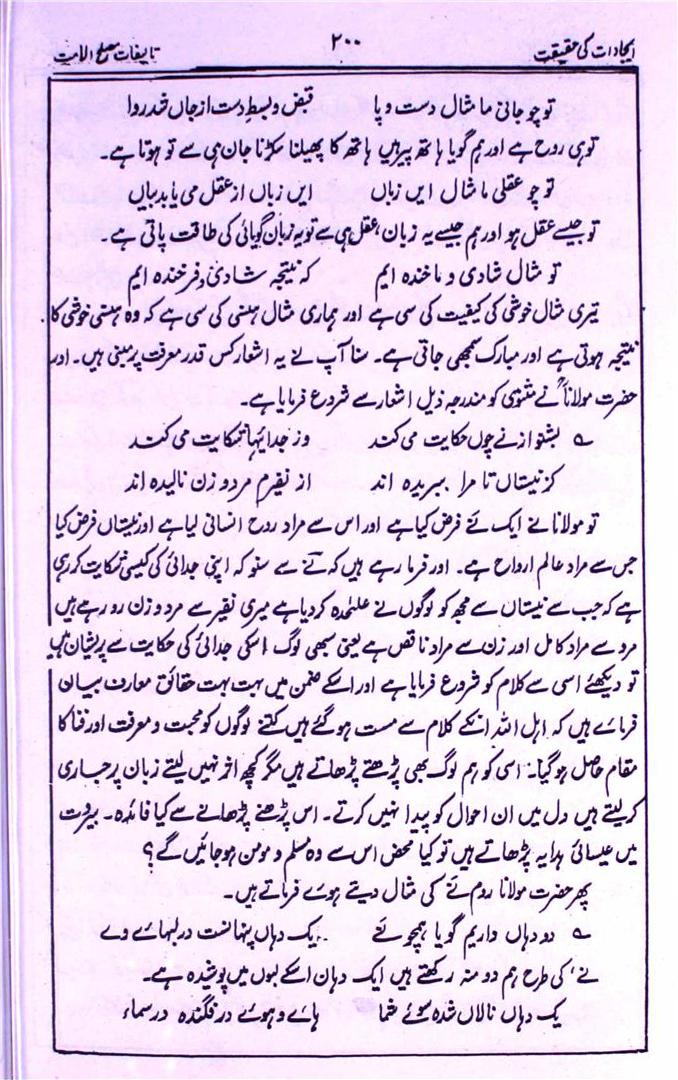 ایجادات کی حقیقت ۲۰۰ تالیفات مصلح الامت
تو چو جانی ما مثال دست و پا قبض و بسط دست از جاں شد روا
تو ہی روح ہے اور ہم گویا ہاتھ پیر ہیں ہاتھ کا پھیلنا سکڑنا جان ہی سے تو ہوتا ہے۔
تو چو عقلی ما مثال ایں زباں ایں زباں از عقل می یابد بیاں
تو جیسے عقل ہو اور ہم جیسے یہ زبان، عقل ہی سے تو یہ زبان گویائی کی طاقت پاتی ہے۔
تو مثال شادی و ما خندہ ایم کہ نتیجہ شادیٔ فرخندہ ایم
تیری مثال خوشی کی کیفیت کی سی ہے اور ہماری مثال ہنسی کی سی ہے کہ وہ ہنسی خوشی کا
نتیجہ ہوتی ہے اور مبارک سمجھی جاتی ہے۔ سنا آپ نے یہ اشعار کس قدر معرفت پر مبنی ہیں۔ اور
حضرت مولاناؒ نے مثنوی کو مندرجہ ذیل اشعار سے شروع فرمایا ہے۔
؎ بشنو از نے چوں حکایت می کند وز جدائیہا شکایت می کند
کز نیستاں تا مرا ببریدہ اند از نفیرم مرد و زن نالیدہ اند
تو مولانا نے ایک نَے فرض کیا ہے اور اس سے مراد روح انسانی لیا ہے اور نیستاں فرض کیا
جس سے مراد عالم ارواح ہے۔ اور فرما رہے ہیں کہ نَے سے سنو کہ اپنی جدائی کی کیسی شکایت کر رہی
ہے کہ جب سے نیستاں سے مجھ کو لوگوں نے علیٰحدہ کر دیا ہے میری نفیر سے مرد و زن رو رہے ہیں
مرد سے مراد کامل اور زن سے مراد ناقص ہے یعنی سبھی لوگ اسکی جدائی کی حکایت سے پریشان ہیں
تو دیکھئے اسی سے کلام کو شروع فرمایا ہے اور اسکے ضمن میں بہت بہت حقائق معارف بیان
فرمائے ہیں کہ اہل اللہ انکے کلام سے مست ہو گئے ہیں کتنے لوگوں کو محبت و معرفت اور فنا کا
مقام حاصل ہو گیا۔ اسی کو ہم لوگ بھی پڑھتے پڑھاتے ہیں مگر کچھ اثر نہیں لیتے زبان پر جاری
کر لیتے ہیں دل میں ان احوال کو پیدا نہیں کرتے۔ اس پڑھنے پڑھانے سے کیا فائدہ۔ بیروت
میں عیسائی ہدایہ پڑھاتے ہیں تو کیا محض اس سے وہ مسلم و مومن ہو جائیں گے؟
پھر حضرت مولانا روم نَے کی مثال دیتے ہوئے فرماتے ہیں۔
؎ دو دہاں داریم گویا ہمچو نے یک دہاں پنہانست در لبہائے وے
نے، کی طرح ہم دو منہ رکھتے ہیں ایک دہان اسکے لبوں میں پوشیدہ ہے۔
یک دہاں نالاں شدہ سوئے شما ہائے و ہوئے در فگندہ در سماء